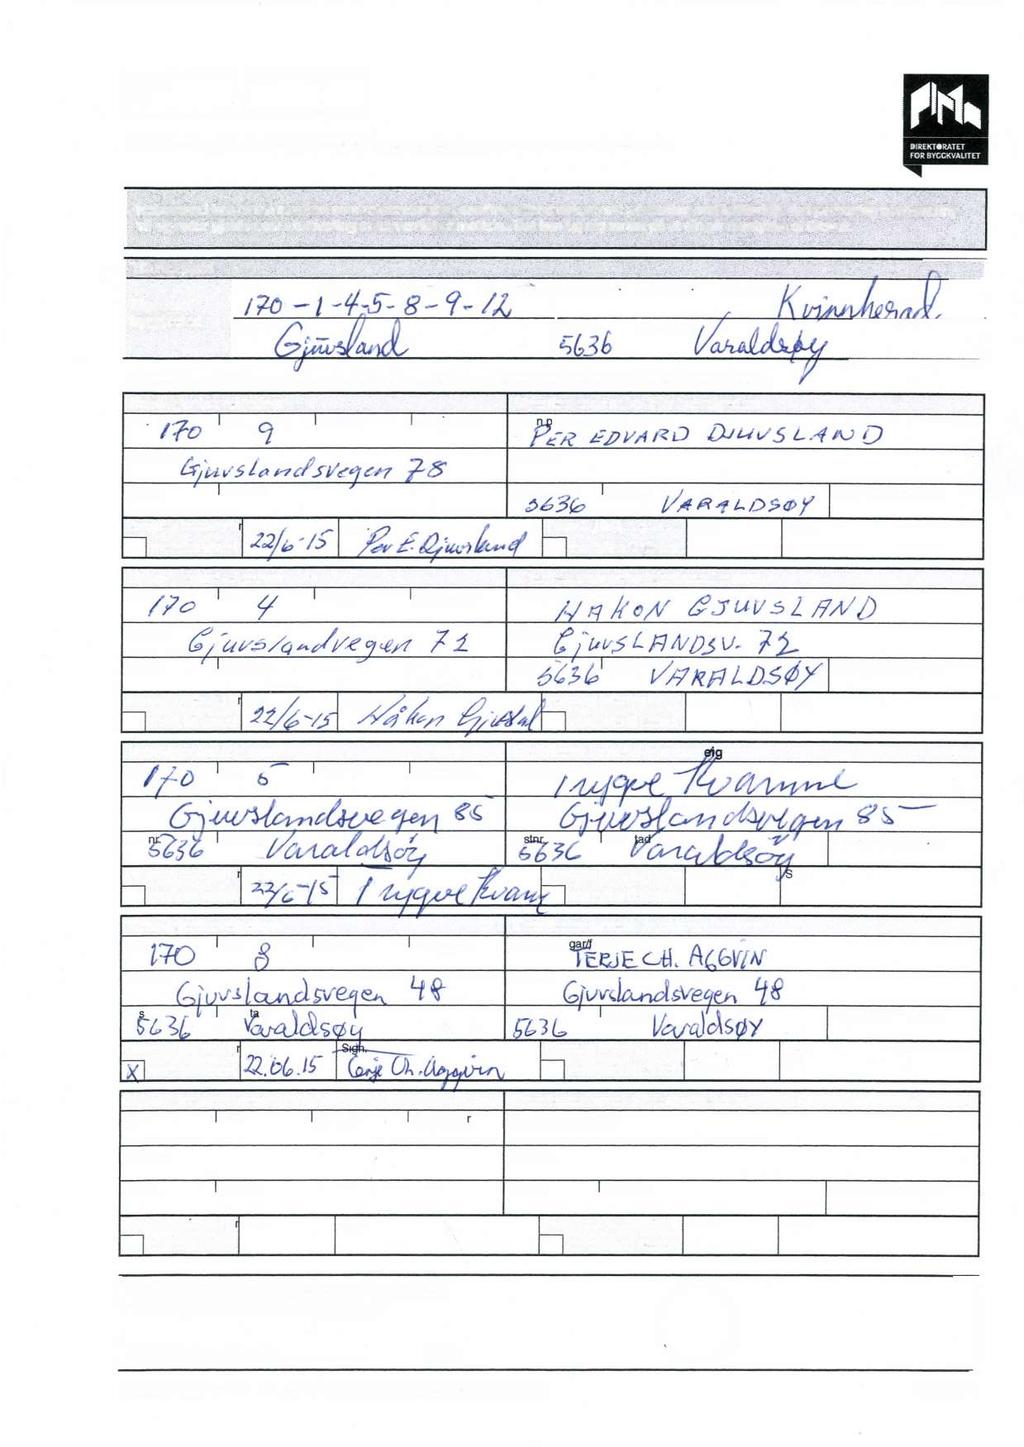 DIREKTORATET
FOR BYGGKVALITET
170 - 1 - 4 - 5 - 8 - 9 - 12 Kvinnherad.
Gjuvsland 5636 Varaldsøy
170 9 PER EDVARD DJUVSLAND
Gjuvslandsvegen 78
5636 VARALDSØY
22/6-15 Per E. Djuvsland
170 4 HÅKON GJUVSLAND
Gjuvslandvegen 72 GjuvSLANDSV. 72
5636 VARALDSØY
22/6-15 Håkon
eig
170 5 Trygve Kvamme
Gjuvslandsvegen 85 Gjuvslandsvegen 85
5636 Varaldsøy 5636 Varaldsøy
22/6-15 Trygve Kvamme
170 8 TERJE CH. AGGVIN
Gjuvslandsvegen 48 Gjuvslandsvegen 48
5636 Varaldsøy 5636 Varaldsøy
X 22.06.15 Sign. Terje Ch. Aggvin